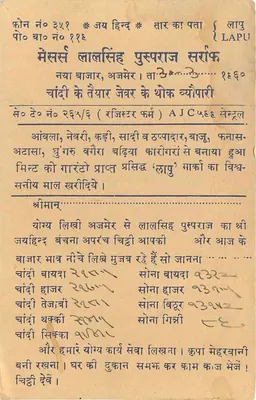 फोन नं० ३५१ * जय हिन्द * तार का पता { लापु
पो० बा० नं० ११६ LAPU
मेसर्स लालसिंह पुस्पराज सर्राफ
नया बाजार, अजमेर। ता० १९६०
चांदी के तैयार जेवर के थोक व्यौपारी
से० टे० नं० २६५/६ ( रजिस्टर फर्म ) A J C ५६६ सेन्ट्रल
आंवला, नेवरी, कड़ी, सादी व ठप्पादार, बाजू, फतास-
अटासा, घुंगरु वगैरा बढ़िया कारीगरों से बनाया हुआ
मिन्ट को गारंटो प्राप्त प्रसिद्ध 'लापु' मार्का का विश्व-
सनीय माल खरीदिये।
श्रीमान्
योग्य लिखी अजमेर से लालसिंह पुस्पराज का श्री
जयहिन्द बंचना अपरंच चिट्ठी आपकी और आज के
बाजार भाव नीचे लिखे मुजब रहे हैं सो जानना
चांदी बायदा सोना बायदा
चांदी हाजर सोना हाजर
चांदी तेजाबी सोना बिठूर
चांदी थक्की सोना गिन्नी
चांदी सिक्का
और हमारे योग्य कार्य सेवा लिखना। कृपा मेहरवानी
बनी रखना। घर की दुकान समझ कर काम काज भेजें।
चिट्ठी देवें।